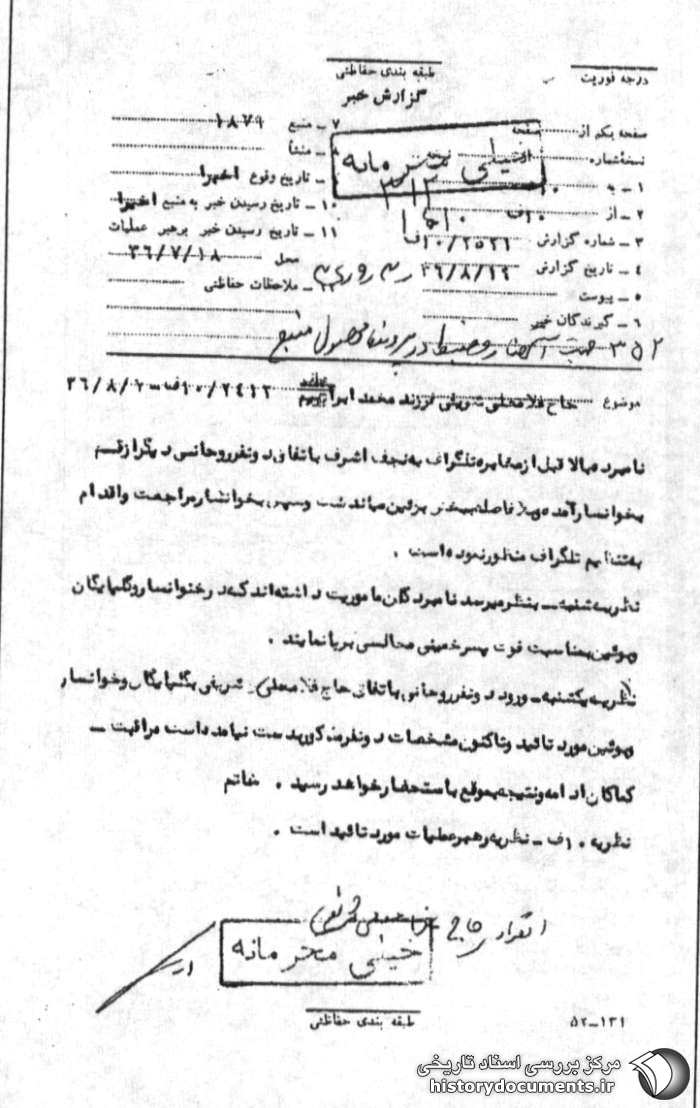 درجه فوریت
طبقه بندی حفاظتی
گزارش خبر
صفحه یکم از صفحه
نسخه شماره
خیلی محرمانه
۱ ـ به ۳۱۲
۲ ـ از ۱۰ف
۳ ـ شماره گزارش ۱۰/۲۵۲۲ف
۴ ـ تاریخ گزارش
۵ ـ پیوست
۶ ـ گیرندگان خبر
۷ ـ منبع ۱۸۷۹
۸ ـ منشأ
۹ ـ تاریخ وقوع اخیرا
۱۰ ـ تاریخ رسیدن خبر به منبع اخیرا
۱۱ ـ تاریخ رسیدن خبر برهبر عملیات
محل ۳۶/۷/۱۸
ملاحظات حفاظتی
موضوع حاج غلامعلی شریفی فرزند محمد ابراهیم ۱۰/۲۴۱۲ف ـ ۳۶/۸/۲
نامبرده بالا قبل از مخابره تلگراف به نجف اشرف باتفاق دو نفر روحانی دیگر از قم
بخوانسار آمده و بلافاصله به بوئین میاندشت و سپس بخوانسار مراجعت و اقدام
به تنظیم تلگراف منظور نموده است .
نظریه شنبه ـ بنظر میرسد نامبردگان ماموریت داشته‌اند که در خوانسار و گلپایگان
و بوئین بمناسبت فوت پسر خمینی مجالسی برپا نمایند .
نظریه یکشنبه ـ ورود دو نفر روحانی باتفاق حاج غلامعلی شریفی بگلپایگان و خوانسار
و بوئین مورد تائید و تاکنون مشخصات دو نفر مذکور بدست نیامده است مراقبت ـ
کماکان ادامه و نتیجه بموقع باستحضار خواهد رسید . خاتم
نظریه ۱۰ف ـ نظریه رهبر عملیات مورد تائید است .
خیلی محرمانه
طبقه بندی حفاظتی
۵۲ـ۱۳۱
مرکز بررسی اسناد تاریخی
historydocuments.ir